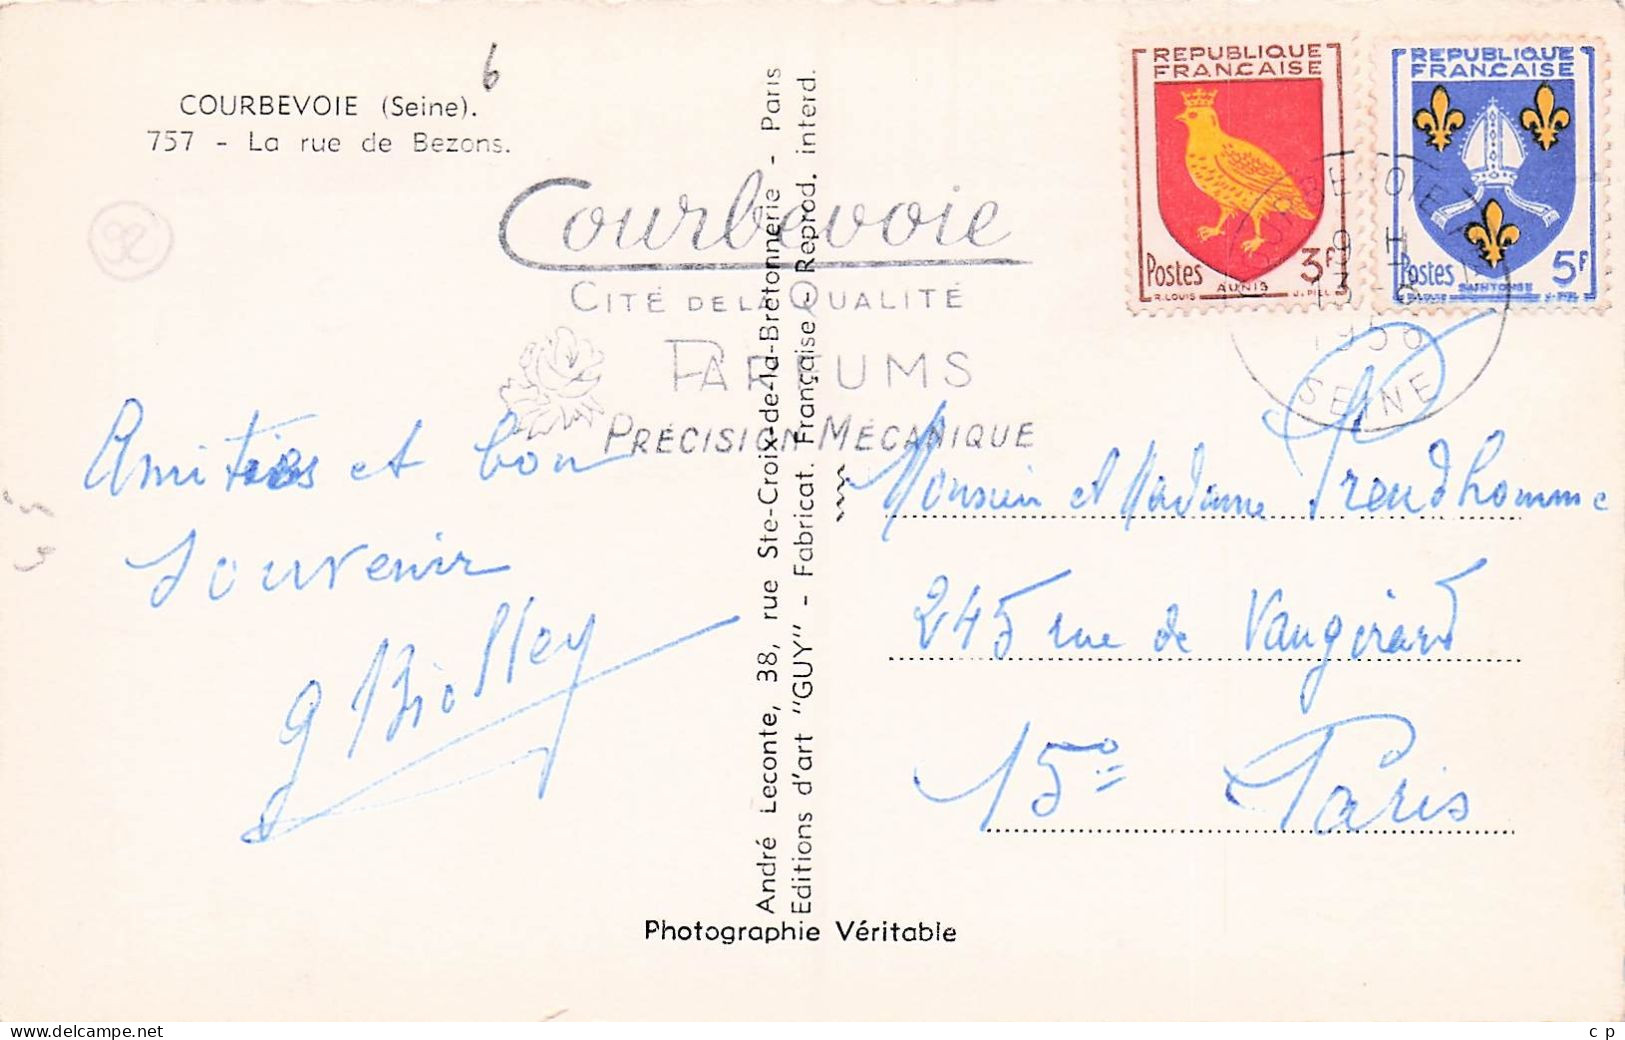 6
COURBEVOIE (Seine).
757 - La rue de Bezons.
92
Courbevoie
CITÉ DE LA QUALITÉ
PARFUMS
PRÉCISION MÉCANIQUE
REPUBLIQUE
FRANÇAISE
Postes 3F
R. LOUIS AUNIS J. PIEL
REPUBLIQUE
FRANÇAISE
Postes 5F
SAINTONGE
COURBEVOIE
9 H
1956
SEINE
Amitiés et bon
souvenir
g Biolley
André Leconte, 38, rue Ste-Croix-de-la-Bretonnerie - Paris
Editions d'art "GUY" - Fabricat. Française - Reprod. interd.
Photographie Véritable
Monsieur et Madame Preudhomme
245 rue de Vaugirard
15e Paris
www.delcampe.net
c p